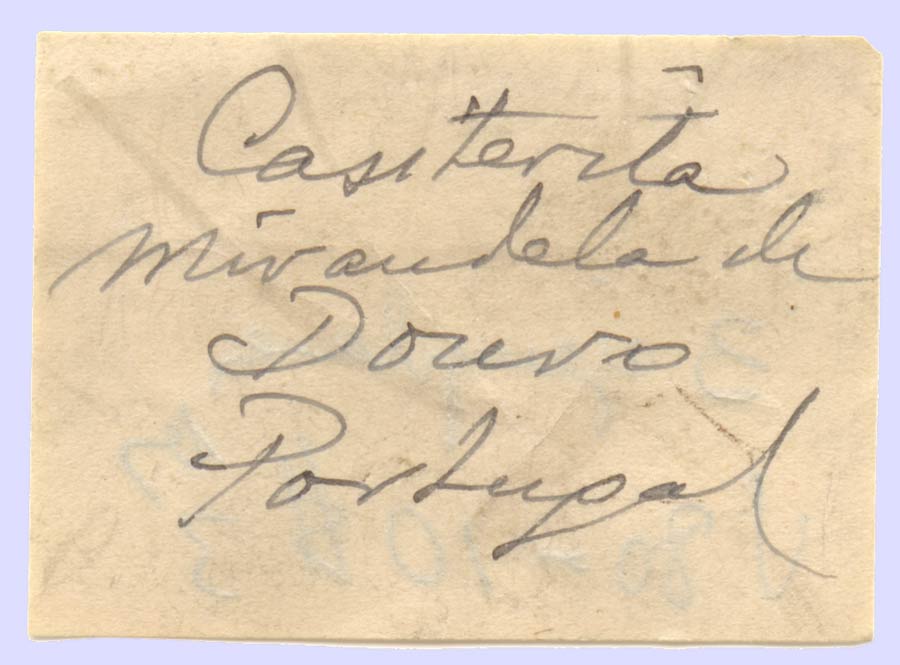 Casiterita
Mirandela de
Douro
Portugal